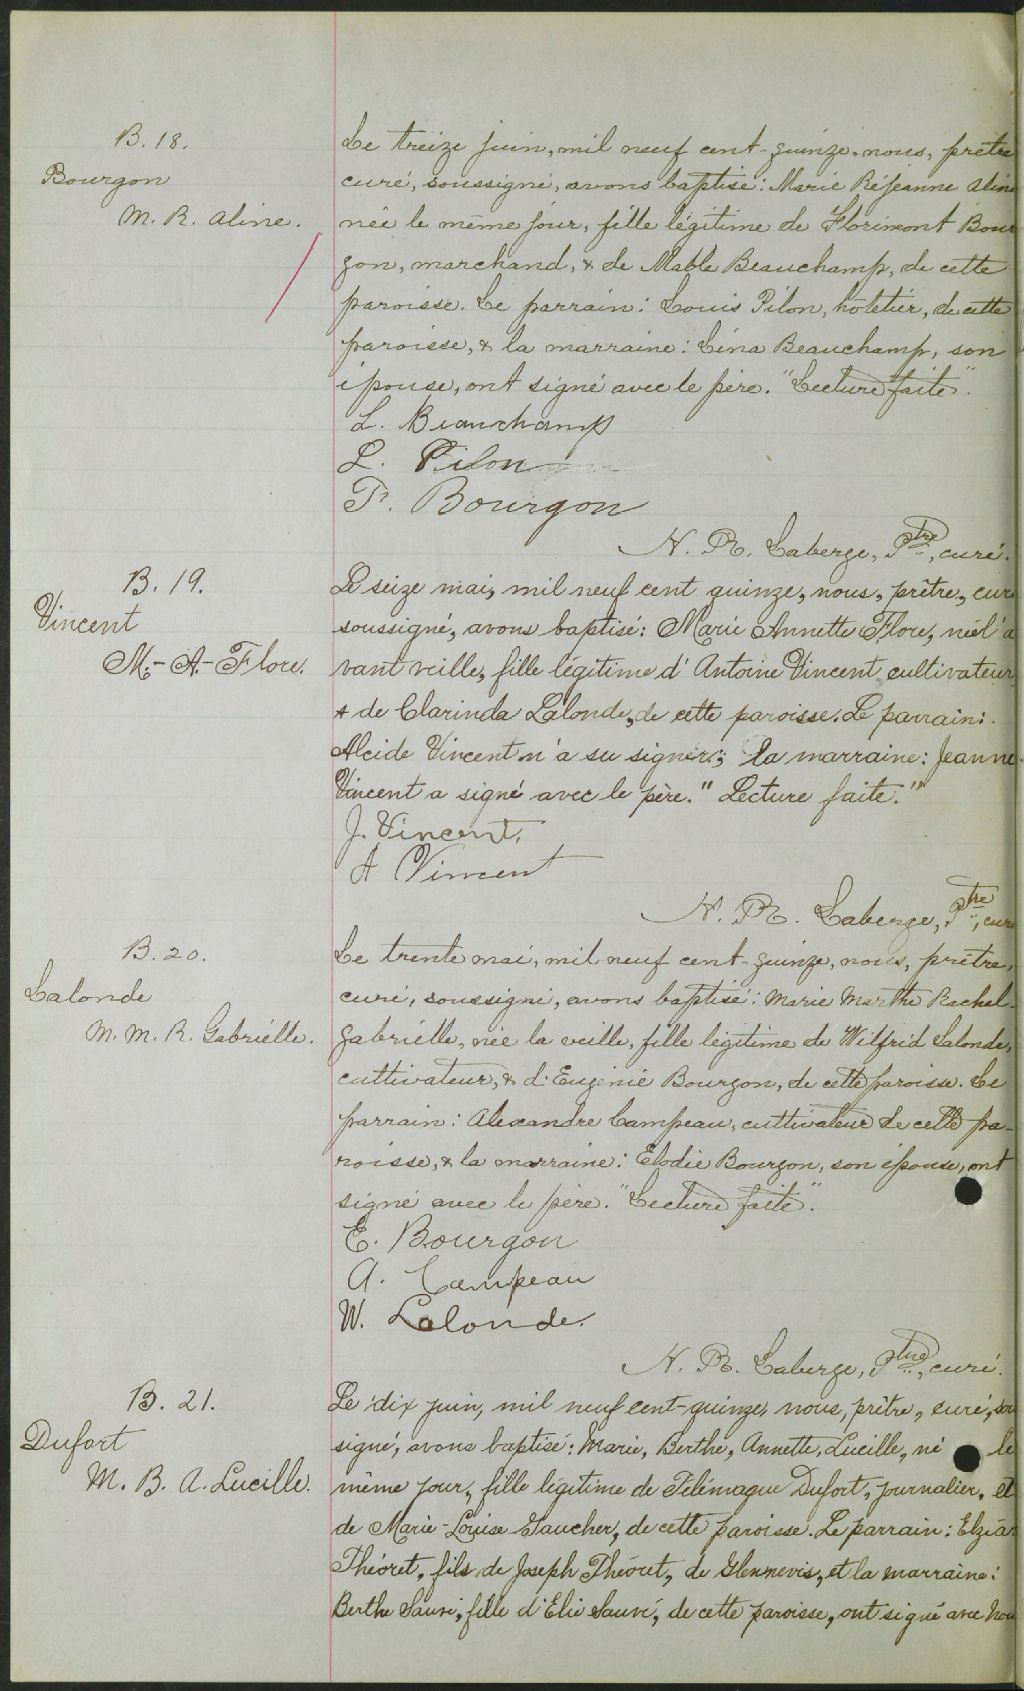 B. 18.
Bourgon
M. R. Aline.
Le treize juin, mil neuf cent-quinze, nous, prêtre
curé, soussigné, avons baptisé: Marie Réjeanne Aline
née le même jour, fille légitime de Florimont Bour
gon, marchand, & de Mable Beauchamp, de cette
paroisse. Le parrain: Louis Pilon, hôtelier, de cette
paroisse, & la marraine: Léna Beauchamp, son
épouse, ont signé avec le père. "Lecture faite".
L. Beauchamp
L. Pilon
F. Bourgon
N. R. Laberge, Ptre, curé.
B. 19.
Vincent
M.-A.-Flore.
Le seize mai, mil neuf cent quinze, nous, prêtre, cur
soussigné, avons baptisé: Marie Annette Flore, née l'a
vant veille, fille légitime d'Antoine Vincent cultivateur
& de Clarinda Lalonde, de cette paroisse. Le parrain:
Alcide Vincent n'a su signer; la marraine: Jeanne
Vincent a signé avec le père. "Lecture faite."
J. Vincent.
A Vincent
N. R. Laberge, Ptre, curé
B. 20.
Lalonde
M. M. R. Gabriélle.
Le trente mai, mil neuf cent-quinze, nous, prêtre,
curé, soussigné, avons baptisé: Marie Marthe Rachel-
Gabriélle, née la veille, fille légitime de Wilfrid Lalonde,
cultivateur, & d'Eugénie Bourgon, de cette paroisse. Le
parrain: Alexandre Campeau, cultivateur de cette pa-
roisse, & la marraine: Elodie Bourgon, son épouse, ont
signé avec le père. "Lecture faite".
E. Bourgon
A. Campeau
W. Lalonde.
N. R. Laberge, Ptre, curé.
B. 21.
Dufort
M. B. A. Lucille.
Le dix juin, mil neuf cent-quinze, nous, prêtre, curé, sou
signé, avons baptisé: Marie, Berthe, Annette, Lucille, né le
même jour, fille légitime de Télémaque Dufort, journalier, et
de Marie-Louise Gaucher, de cette paroisse. Le parrain: Elzéa
Théoret, fils de Joseph Théoret, de Glennevis, et la marraine:
Berthe Sauvé, fille d'Elie Sauvé, de cette paroisse, ont signé avec nou